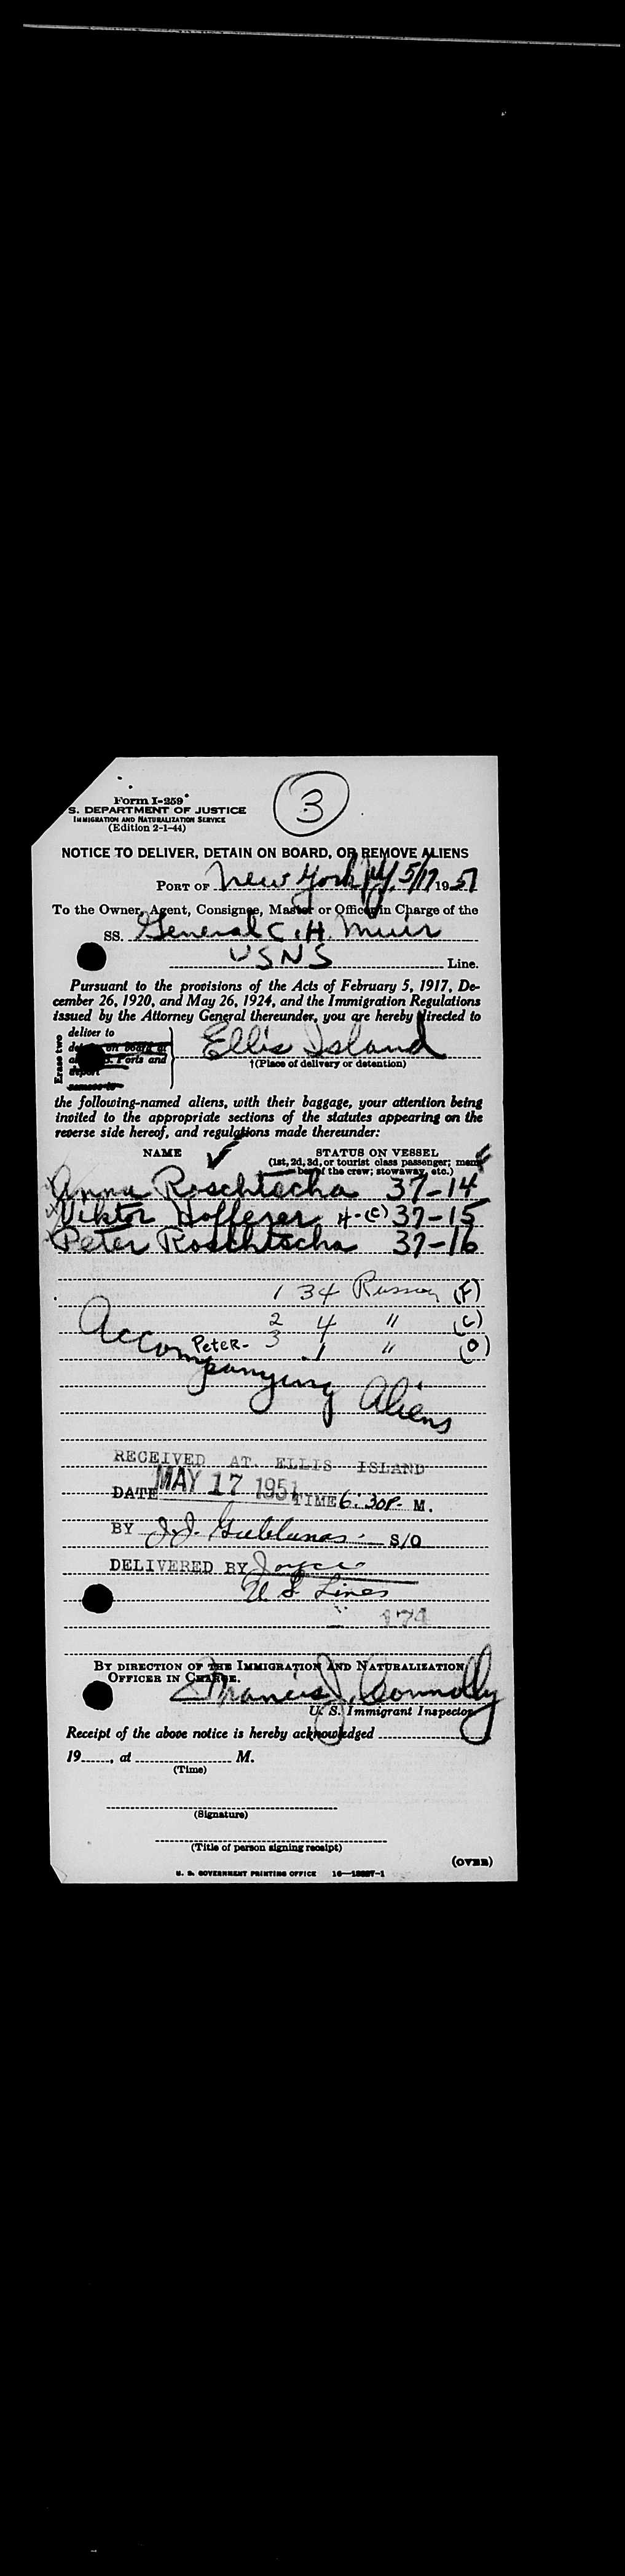 3
Form I-259
S. DEPARTMENT OF JUSTICE
IMMIGRATION AND NATURALIZATION SERVICE
(Edition 2-1-44)
NOTICE TO DELIVER, DETAIN ON BOARD, OR REMOVE ALIENS
PORT OF New York, NY, 5/17 1951
To the Owner, Agent, Consignee, Master or Officer in Charge of the
SS. General C. H. Muir
USNS Line.
Pursuant to the provisions of the Acts of February 5, 1917, De-
cember 26, 1920, and May 26, 1924, and the Immigration Regulations
issued by the Attorney General thereunder, you are hereby directed to
Erase two
deliver to
detain on board at
Ports and
deport
remove to
Ellis Island
†(Place of delivery or detention)
the following-named aliens, with their baggage, your attention being
invited to the appropriate sections of the statutes appearing on the
reverse side hereof, and regulations made thereunder:
NAME STATUS ON VESSEL
(1st, 2d, 3d, or tourist class passenger; mem-
ber of the crew; stowaway, etc.)
Anna Roschtscha 37-14
Viktor Hofferer H-(C) 37-15
Peter Roschtscha 37-16
1 34 Russian (F)
2 4 " (C)
Peter- 3 1 " (O)
Accompanying Aliens
RECEIVED AT ELLIS ISLAND
DATE MAY 17 1951 TIME 6:30P. M.
BY J.J. S/O
DELIVERED BY Joyce
U S Lines
174
BY DIRECTION OF THE IMMIGRATION AND NATURALIZATION
OFFICER IN CHARGE.
Francis J. Connolly
U. S. Immigrant Inspector
Receipt of the above notice is hereby acknowledged
19, at M.
(Time)
(Signature)
(Title of person signing receipt)
(OVER)
U. S. GOVERNMENT PRINTING OFFICE